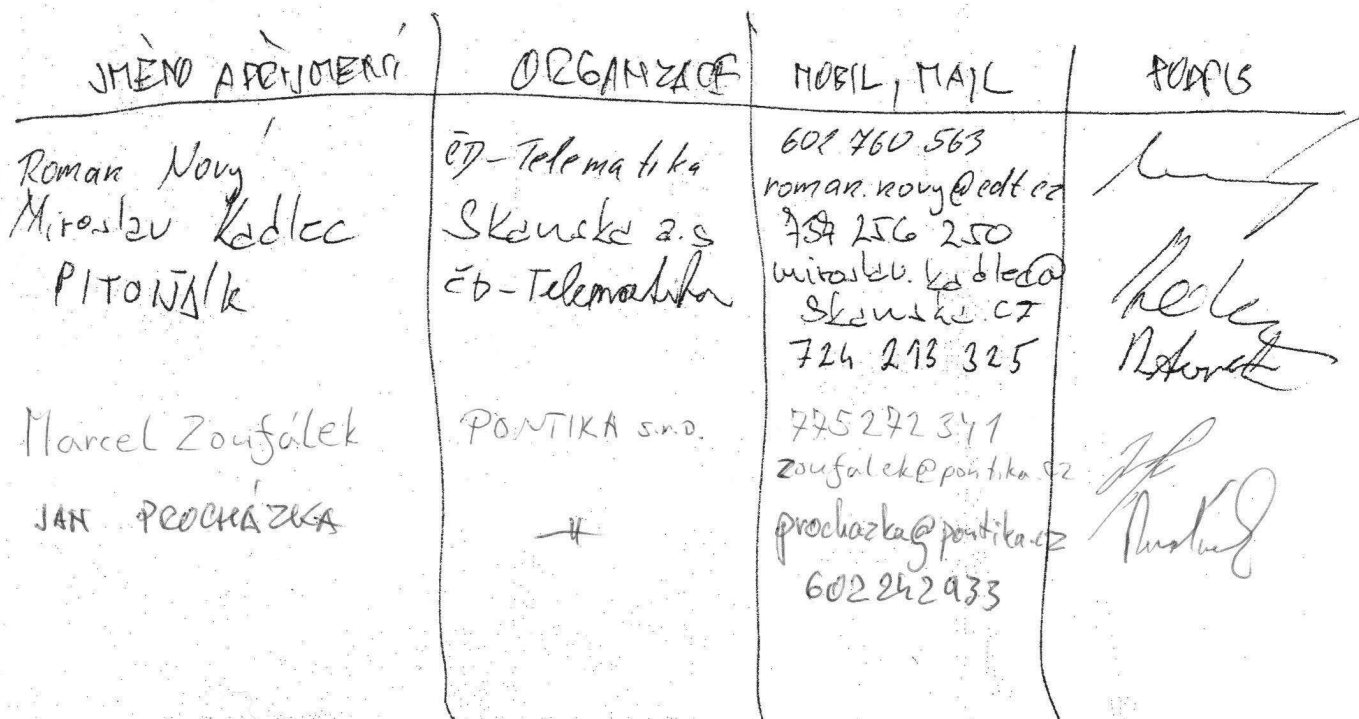 JMÉNO A PŘÍJMENÍ ORGANIZACE MOBIL, MAIL PODPIS
Roman Nový ČD-Telematika 602 760 563
roman.novy@cdt.cz
Miroslav Kadlec Skanska a.s 737 256 250
PITOŇÁK ČD-Telematika miroslav.kadlec@
skanska.cz
724 213 325
Marcel Zoufálek PONTIKA s.r.o. 775 272 341
zoufalek@pontika.cz
JAN PROCHÁZKA -"- prochazka@pontika.cz
602 242 933